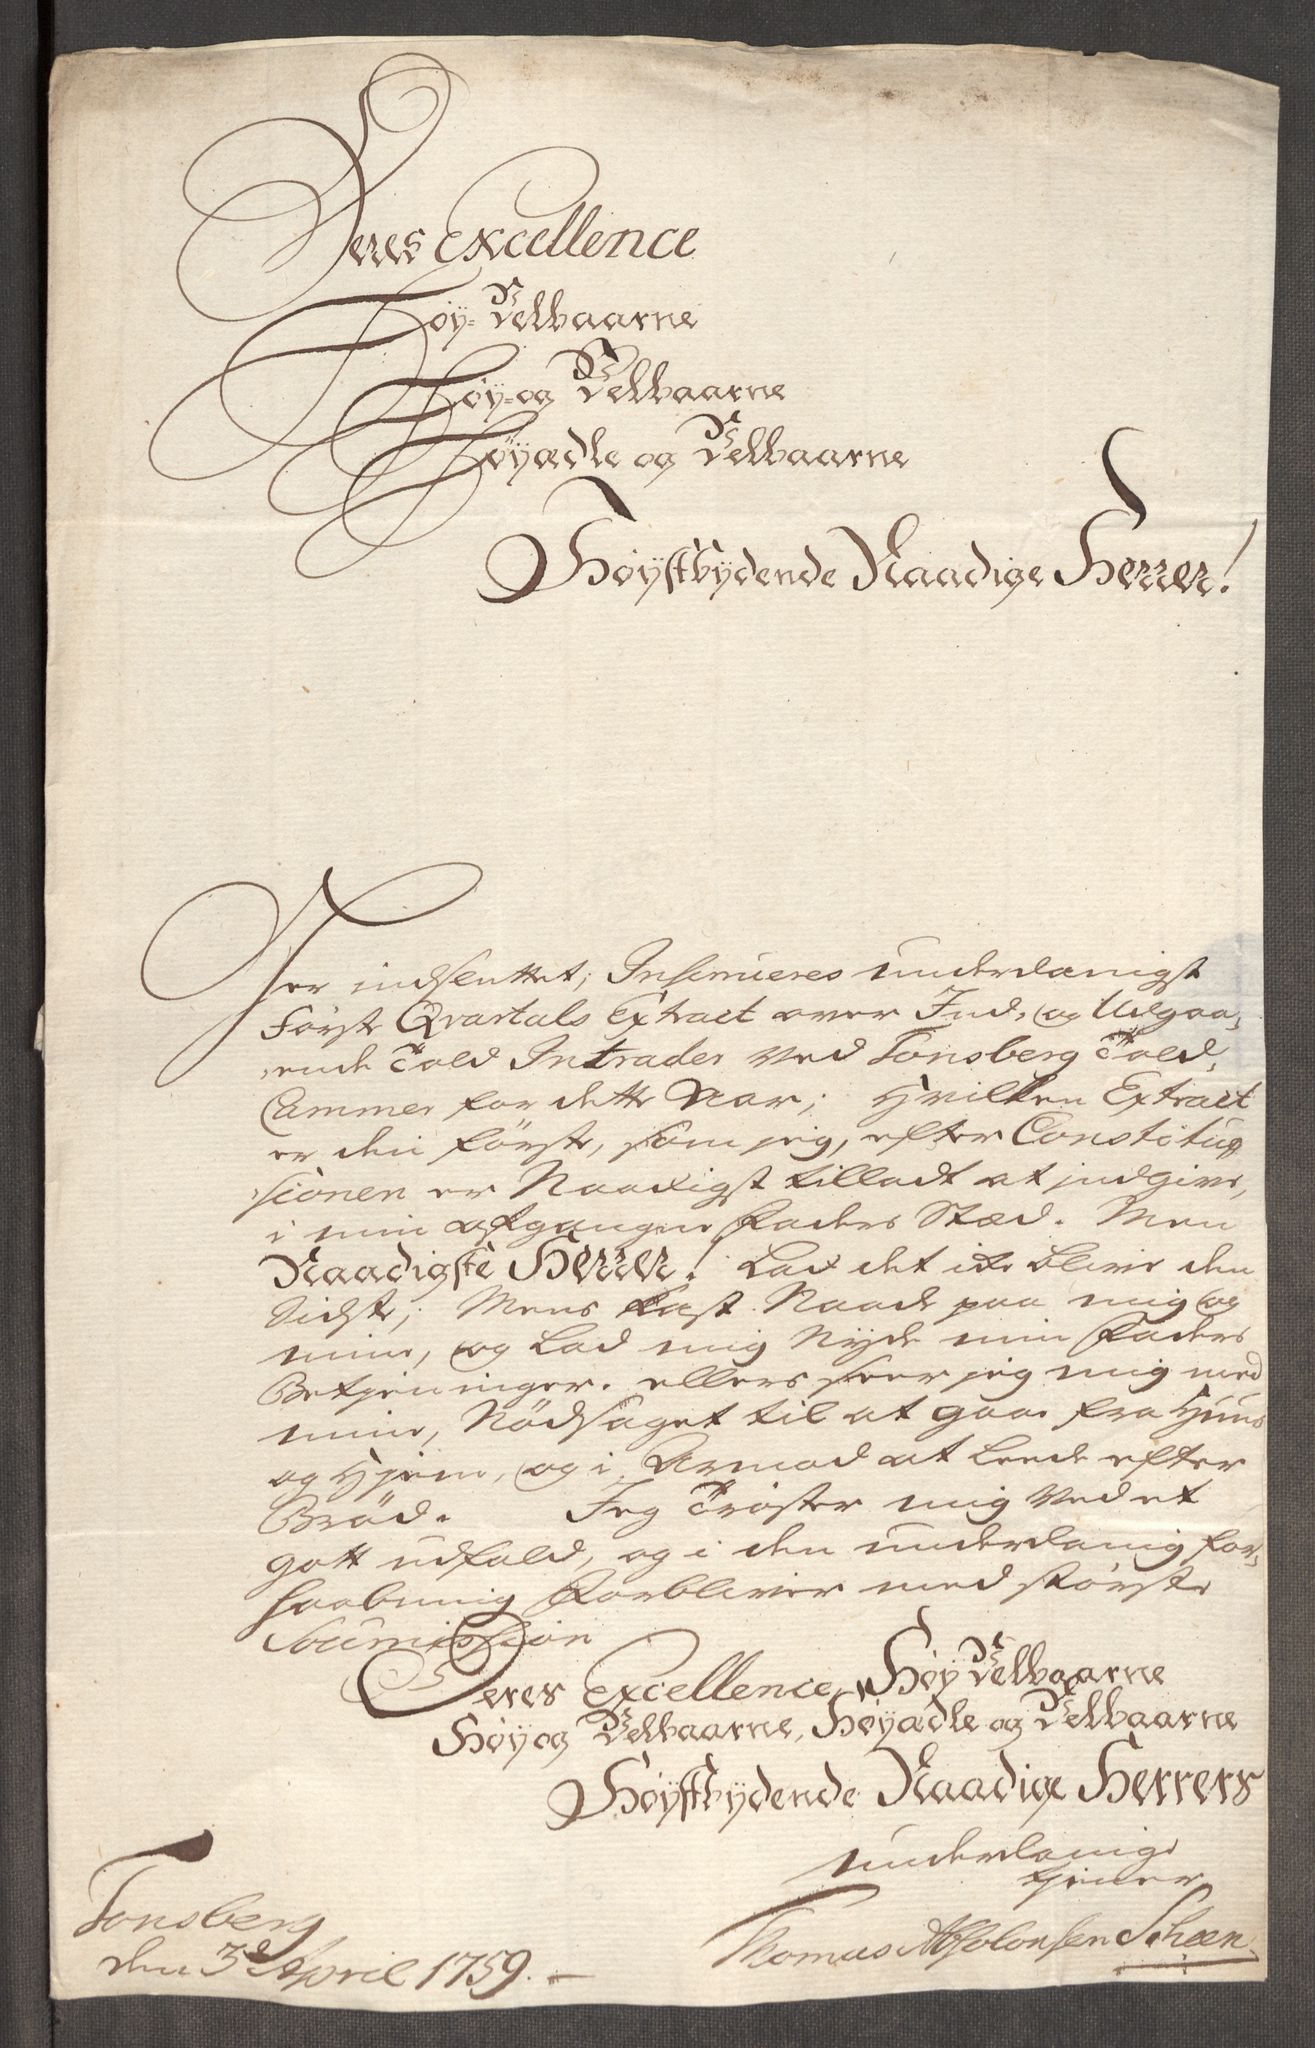 Deres Excellence
Høy-Velbaarne
Høy-og Velbaarne
Høyædle og Velbaarne
Høystbydende Naadige Herrer!
Her indsluttet, Insinueres underdanigst
Første Qvartals Extract over Ind- og Udgaa-
ende Told Intrader ved Tonsberg Told-
Cammer for dette Aar; Hvilken Extract
er den første, som jeg, efter Constitu-
sionen er Naadigst tilladt at indgive,
i min afgangne Faders Stæd. Men
Naadigste Herrer! Lad det ike blive den
Sidste; Mens kast Naade paa mig og
mine, og Lad mig Nyde min Faders
Betjeninger. ellers seer jeg mig med
mine, Nødsaget til at gaae fra Huus
og Hjem, og i Armod at leede efter
Brød. Jeg Trøster mig ved et
gott udfald, og i den underdanig for-
haabning Forbliver med største
Soumission
Deres Excellence, Høy Velbaarne
Høy og Velbaarne, Høyædle og Velbaarne
Høystbydende Naadige Herrers
underdanige
tjener
Thomas Absolonsen Scheen
Tonsberg
den 3d April 1759.